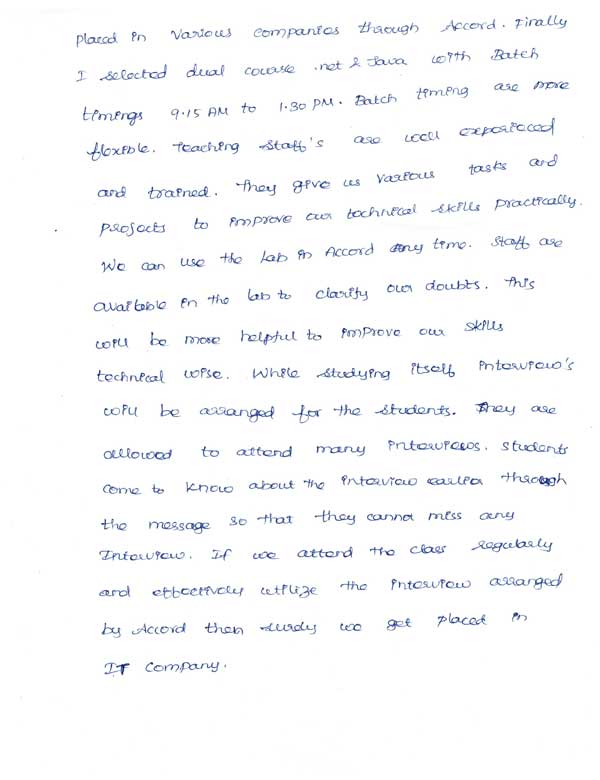 placed in various companies through Accord. Finally
I selected dual course .net & Java with Batch
timings 9.15 AM to 1.30 PM. Batch timing are more
flexible. Teaching staff's are well experienced
and trained. They give us various tasks and
projects to improve our technical skills practically.
We can use the lab in Accord any time. Staff are
available in the lab to clarify our doubts. This
will be more helpful to improve our skills
technical wise. While studying itself interview's
will be arranged for the students. They are
allowed to attend many interviews. Students
come to know about the interview earlier through
the message so that they cannot miss any
Interview. If we attend the class regularly
and effectively utilize the interview arranged
by Accord then surely we get placed in
IT company.